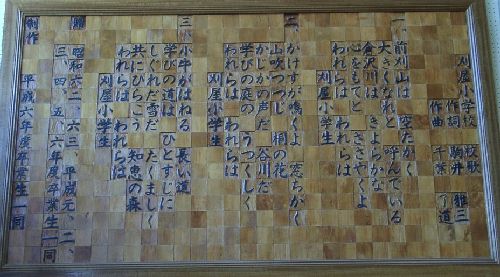 刈屋小学校 校歌
作詞 駒井 雅三
作曲 千葉 了道
一、前刈山は 空たかく
大きくなれと 呼んでいる
倉沢川は きよらかな
心をもてと ささやくよ
われらは われらは
刈屋小学生
二、かけすが鳴くよ 窓ちかく
山吹つつじ 桐の花
かじかの声だ 谷川だ
学びの庭の うつくしく
われらは われらは
刈屋小学生
三、小牛がはねる 長い道
学びの道は ひとすじに
しぐれだ雪だ たくましく
共にひらこう 知恵の森
われらは われらは
刈屋小学生
贈 昭和六二、六三、平成元、二、
三、四、五、六年度卒業生一同
制作 平成六年度卒業生一同